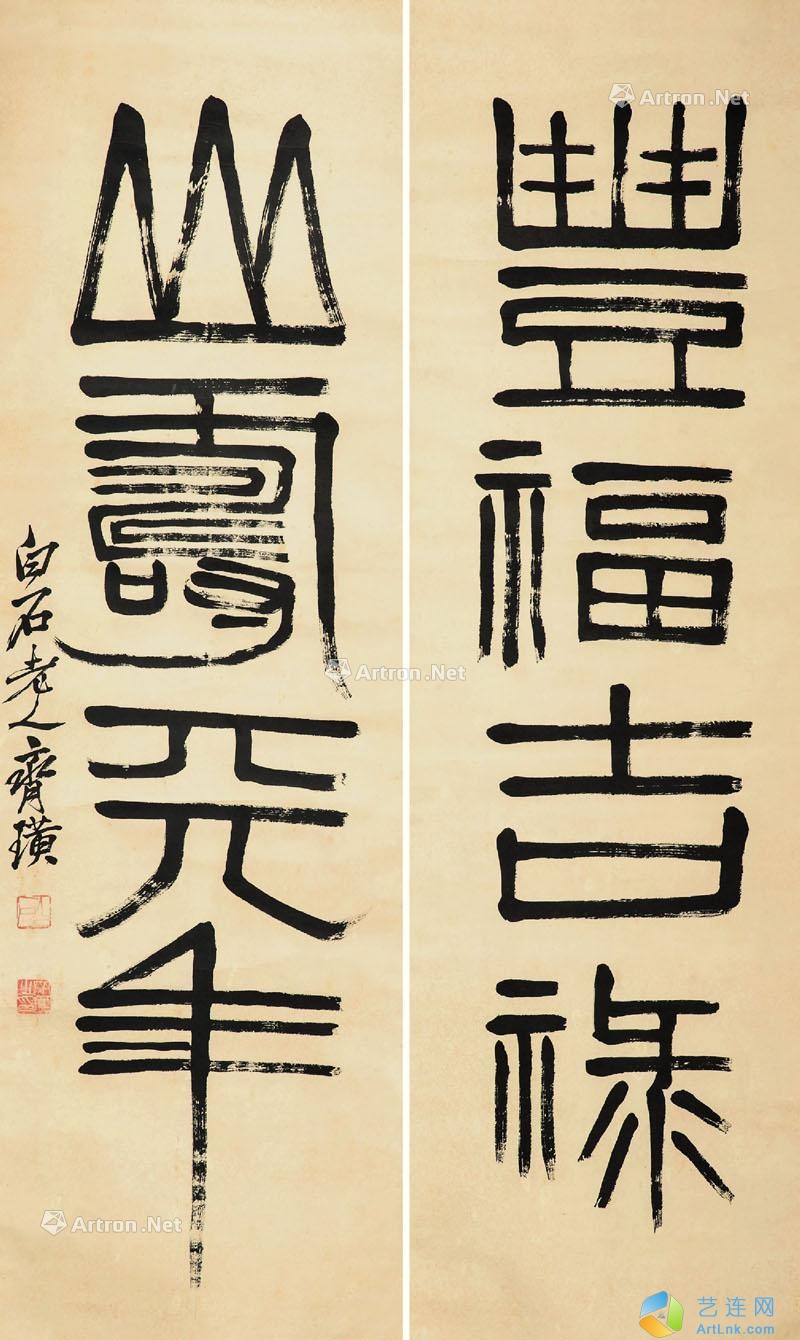 豐福吉祿
山壽天年
白石老人齊璜
Artron.Net
Artron.Net
Artron.Net
艺连网
ArtLnk.com